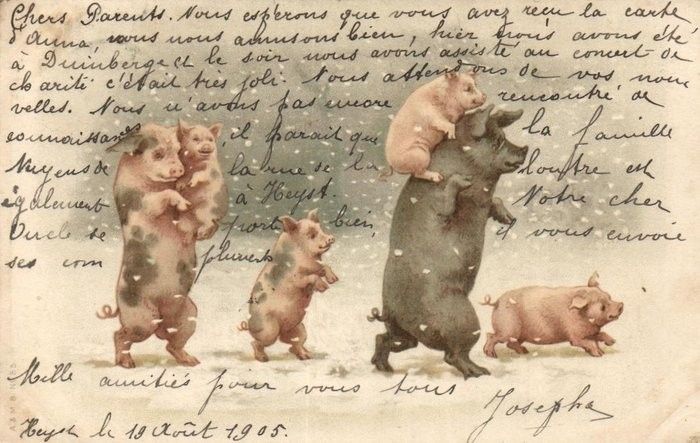 Chers Parents. Nous espérons que vous avez reçu la carte
d'Anna, nous nous amusons bien, hier nous avons été
à Duinberge, et le soir nous avons assisté au concert de
charité c'était très joli. Nous attendons de vos nou
velles. Nous n'avons pas encore rencontré de
connaissances, il parait que la famille
Nuyens de la rue de la loutre est
également à Heyst. Notre cher
Oncle se port bien, il vous envoie
ses com pliments
Mille amitiés pour vous tous
Josepha
Heyst le 19 Août 1905.